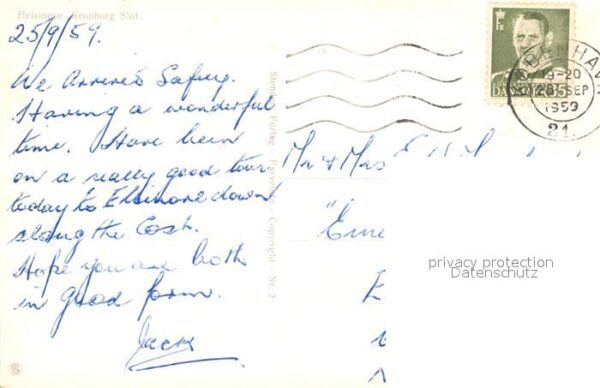 Helsingør. Kronborg Slot.
25/9/59.
We Arrived Safley.
Having a wonderful
time. Have been
on a really good tour
today to Elsinore down
along the Cost.
Hope you are both
in good form.
Jack
Copyright - Nr. 2
KØBENHAVN
19-20
25 SEP
1959
21.
DANMARK
Mr & Mrs E
"Eme
privacy protection
Datenschutz